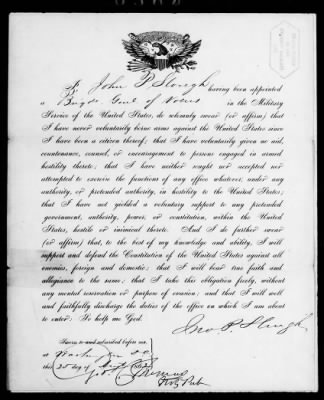 I, John P. Slough having been appointed
a Brig. Genl of Vols in the Military
Service of the United States, do solemnly swear (or affirm) that
I have never voluntarily borne arms against the United States since
I have been a citizen thereof; that I have voluntarily given no aid,
countenance, counsel, or encouragement to persons engaged in armed
hostility thereto; that I have neither sought nor accepted nor
attempted to exercise the functions of any office whatever, under any
authority, or pretended authority, in hostility to the United States;
that I have not yielded a voluntary support to any pretended
government, authority, power, or constitution, within the United
States, hostile or inimical thereto. And I do further swear
(or affirm) that, to the best of my knowledge and ability, I will
support and defend the Constitution of the United States against all
enemies, foreign and domestic; that I will bear true faith and
allegiance to the same; that I take this obligation freely, without
any mental reservation or purpose of evasion; and that I will well
and faithfully discharge the duties of the office on which I am about
to enter: So help me God.
Jno. P. Slough
Sworn to and subscribed before me
at Washington D.C.
this 25 day of